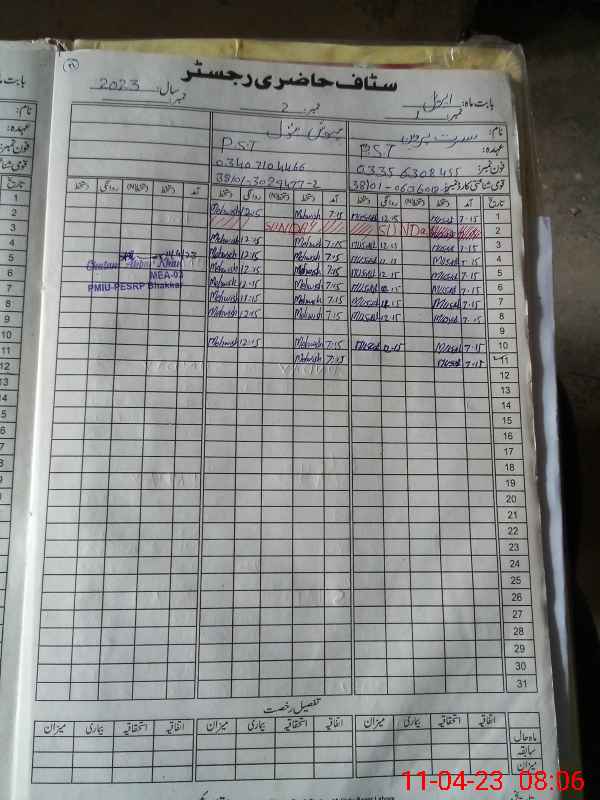 سٹاف حاضری رجسٹر
بابت ماہ: اپریل سال: 2023
نمبر: 1 نمبر: 2 نمبر:
نام: مسرت پروین
عہدہ: P.S.T P.S.T
فون نمبر: 0335 6308455 03407104466
قومی شناختی کارڈ نمبر: 38101-3029477-2
تاریخ آمد دستخط روانگی دستخط آمد دستخط روانگی دستخط آمد دستخط روانگی دستخط
1 7.15 Musrat 12.15 Musrat 7.15 Mehwish 12.15 Mehwish
2 SUNDAY SUNDAY
3 7.15 Musrat 12.15 Musrat 7.15 Mehwish 12.15 Mehwish
4 7.15 Musrat 12.15 Musrat 7.15 Mehwish 12.15 Mehwish
5 7.15 Musrat 12.15 Musrat 7.15 Mehwish 12.15 Mehwish
6 7.15 Musrat 12.15 Musrat 7.15 Mehwish 12.15 Mehwish
7 7.15 Musrat 12.15 Musrat 7.15 Mehwish 12.15 Mehwish
8 7.15 Musrat 12.15 Musrat 7.15 Mehwish 12.15 Mehwish
9
10 7.15 Musrat 12.15 Musrat 7.15 Mehwish 12.15 Mehwish
11 7.15 Musrat 7.15 Mehwish
12
13
14
15
16
17
18
19
20
21
22
23
24
25
26
27
28
29
30
31
Khan
MEA-02
PMIU-PESRP Bhakkar
تفصیل رخصت
اتفاقیہ استحقاقیہ بیماری میزان اتفاقیہ استحقاقیہ بیماری میزان اتفاقیہ استحقاقیہ بیماری میزان
ماہ حال
سابقہ
میزان
11-04-23 08:06